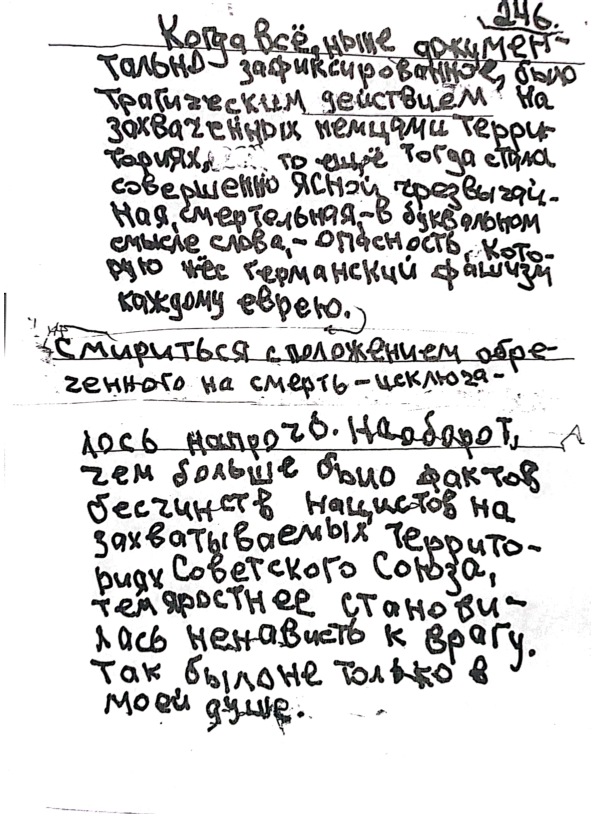 246.
Когда всё, ныне докумен-
тально зафиксированное, было
трагическим действием на
захваченных немцами терри-
ториях, то ещё тогда стала
совершенно ясной чрезвычай-
ная, смертельная, - в буквальном
смысле слова, - опасность, кото-
рую нёс германский фашизм
каждому еврею.
Смириться с положением обре-
ченного на смерть - исключа-
лось напрочь. Наоборот,
чем больше было фактов
бесчинств нацистов на
захватываемых террито-
риях Советского Союза,
тем яростнее станови-
лась ненависть к врагу.
Так было не только в
моей душе.